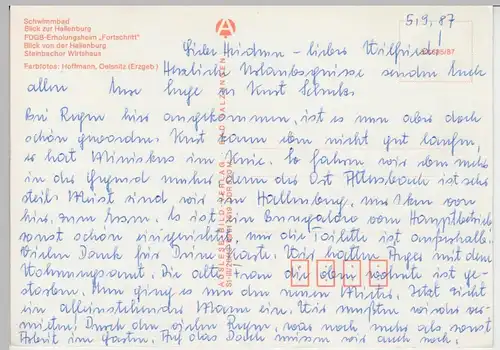 Schwimmbad
Blick zur Hallenburg
FDGB-Erholungsheim „Fortschritt"
Blick von der Hallenburg
Steinbacher Wirtshaus
Farbfotos: Hoffmann, Oelsnitz (Erzgeb.)
5.9.87
Liebe Heidrun – lieber Wilfried!
Herzliche Urlaubsgrüsse senden Euch
allen Eure Inge u. Kurt
Bei Regen hier angekommen, ist es nun aber doch
schön geworden. Kurt kann eben nicht gut laufen,
er hat Miniskus im Knie. So fahren wir eben mehr
in der Gegend umher, denn die Ort Altersbach ist sehr
steil. Meist sind wir in Hallenburg, nur 1 km von
hier, zum Essen. Es ist ein Bungalow vom Hauptbetrieb
sonst schön eingerichtet, nur die Toilette ist ausserhalb.
Vielen Dank für Deine Karte. Wir hatten Ärger mit dem
Wohnungsamt. Die alte Frau die oben wohnte ist ge-
storben. Nun ging es um den neuen Mieter. Jetzt zieht
ein alleinstehender Mann ein. Wir mußten wieder ver-
mieten. Durch den vielen Regen, war noch mehr als sonst
Arbeit im Garten. Auf das Dach müssen wir auch noch.